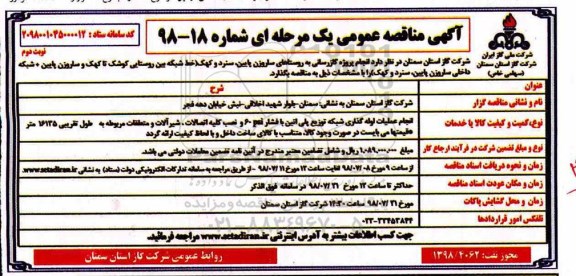 آگهی مناقصه عمومی یک مرحله ای شماره ۱۸-۹۸
کد سامانه ستاد : ۲۰۹۸۰۰۱۰۴۵۰۰۰۰۱۲
نوبت دوم
شرکت ملی گاز ایران
شرکت گاز استان سمنان
(سهامی خاص)
شرکت گاز استان سمنان در نظر دارد انجام پروژه گازرسانی به روستاهای ساروزن پایین، سنرد و کهک(خط شبکه بین روستایی کوشک تا کهک و ساروزن پایین + شبکه
داخلی ساروزن پایین، سنرد و کهک)را با مشخصات ذیل به مناقصه بگذارد.
عنوان
شرح
نام و نشانی مناقصه گزار
شرکت گاز استان سمنان به نشانی: سمنان -بلوار شهید اخلاقی-نبش خیابان دهه فجر
نوع،کمیت و کیفیت کالا یا خدمات
انجام عملیات لوله گذاری شبکه توزیع پلی اتین با فشار ۶۰ و نصب کلیه اتصالات ، شیرآلات و متعلقات مربوطه به طول تقریبی ۱۶۱۳۵ متر
*قیمتها می بایست در صورت وجود کالا، متناسب با کالای ساخت داخل و با لحاظ کیفیت ارائه گردد
نوع و مبلغ تضمین شرکت در فرآیند ارجاع کار
ریال و شامل تضامین معتبر مندرج در آئین نامه تضمین معاملات دولتی می باشد.
زمان و نحوه دریافت اسناد مناقصه
از طریق مراجعه به سامانه تدارکات الکترونیکی دولت (ستاد) به نشانی www.setadiran.ir
زمان و مکان عودت اسناد مناقصه
حداکثر تا ساعت ۱۴ مورخ ۹۸/۰۷/۲۱ در سامانه فوق الذکر
زمان و محل گشایش پاکات
شرکت گاز استان سمنان
تلفکس امور قراردادها
۰۲۳-۳۳۴۵۲۸۴۴
جهت کسب اطلاعات بیشتر به آدرس اینترنتی www.setadiran.ir مراجعه فرمائید.
مجوز نفت: ۱۳۹۸/۴۰۶۲
روابط عمومی شرکت گاز استان سمنان